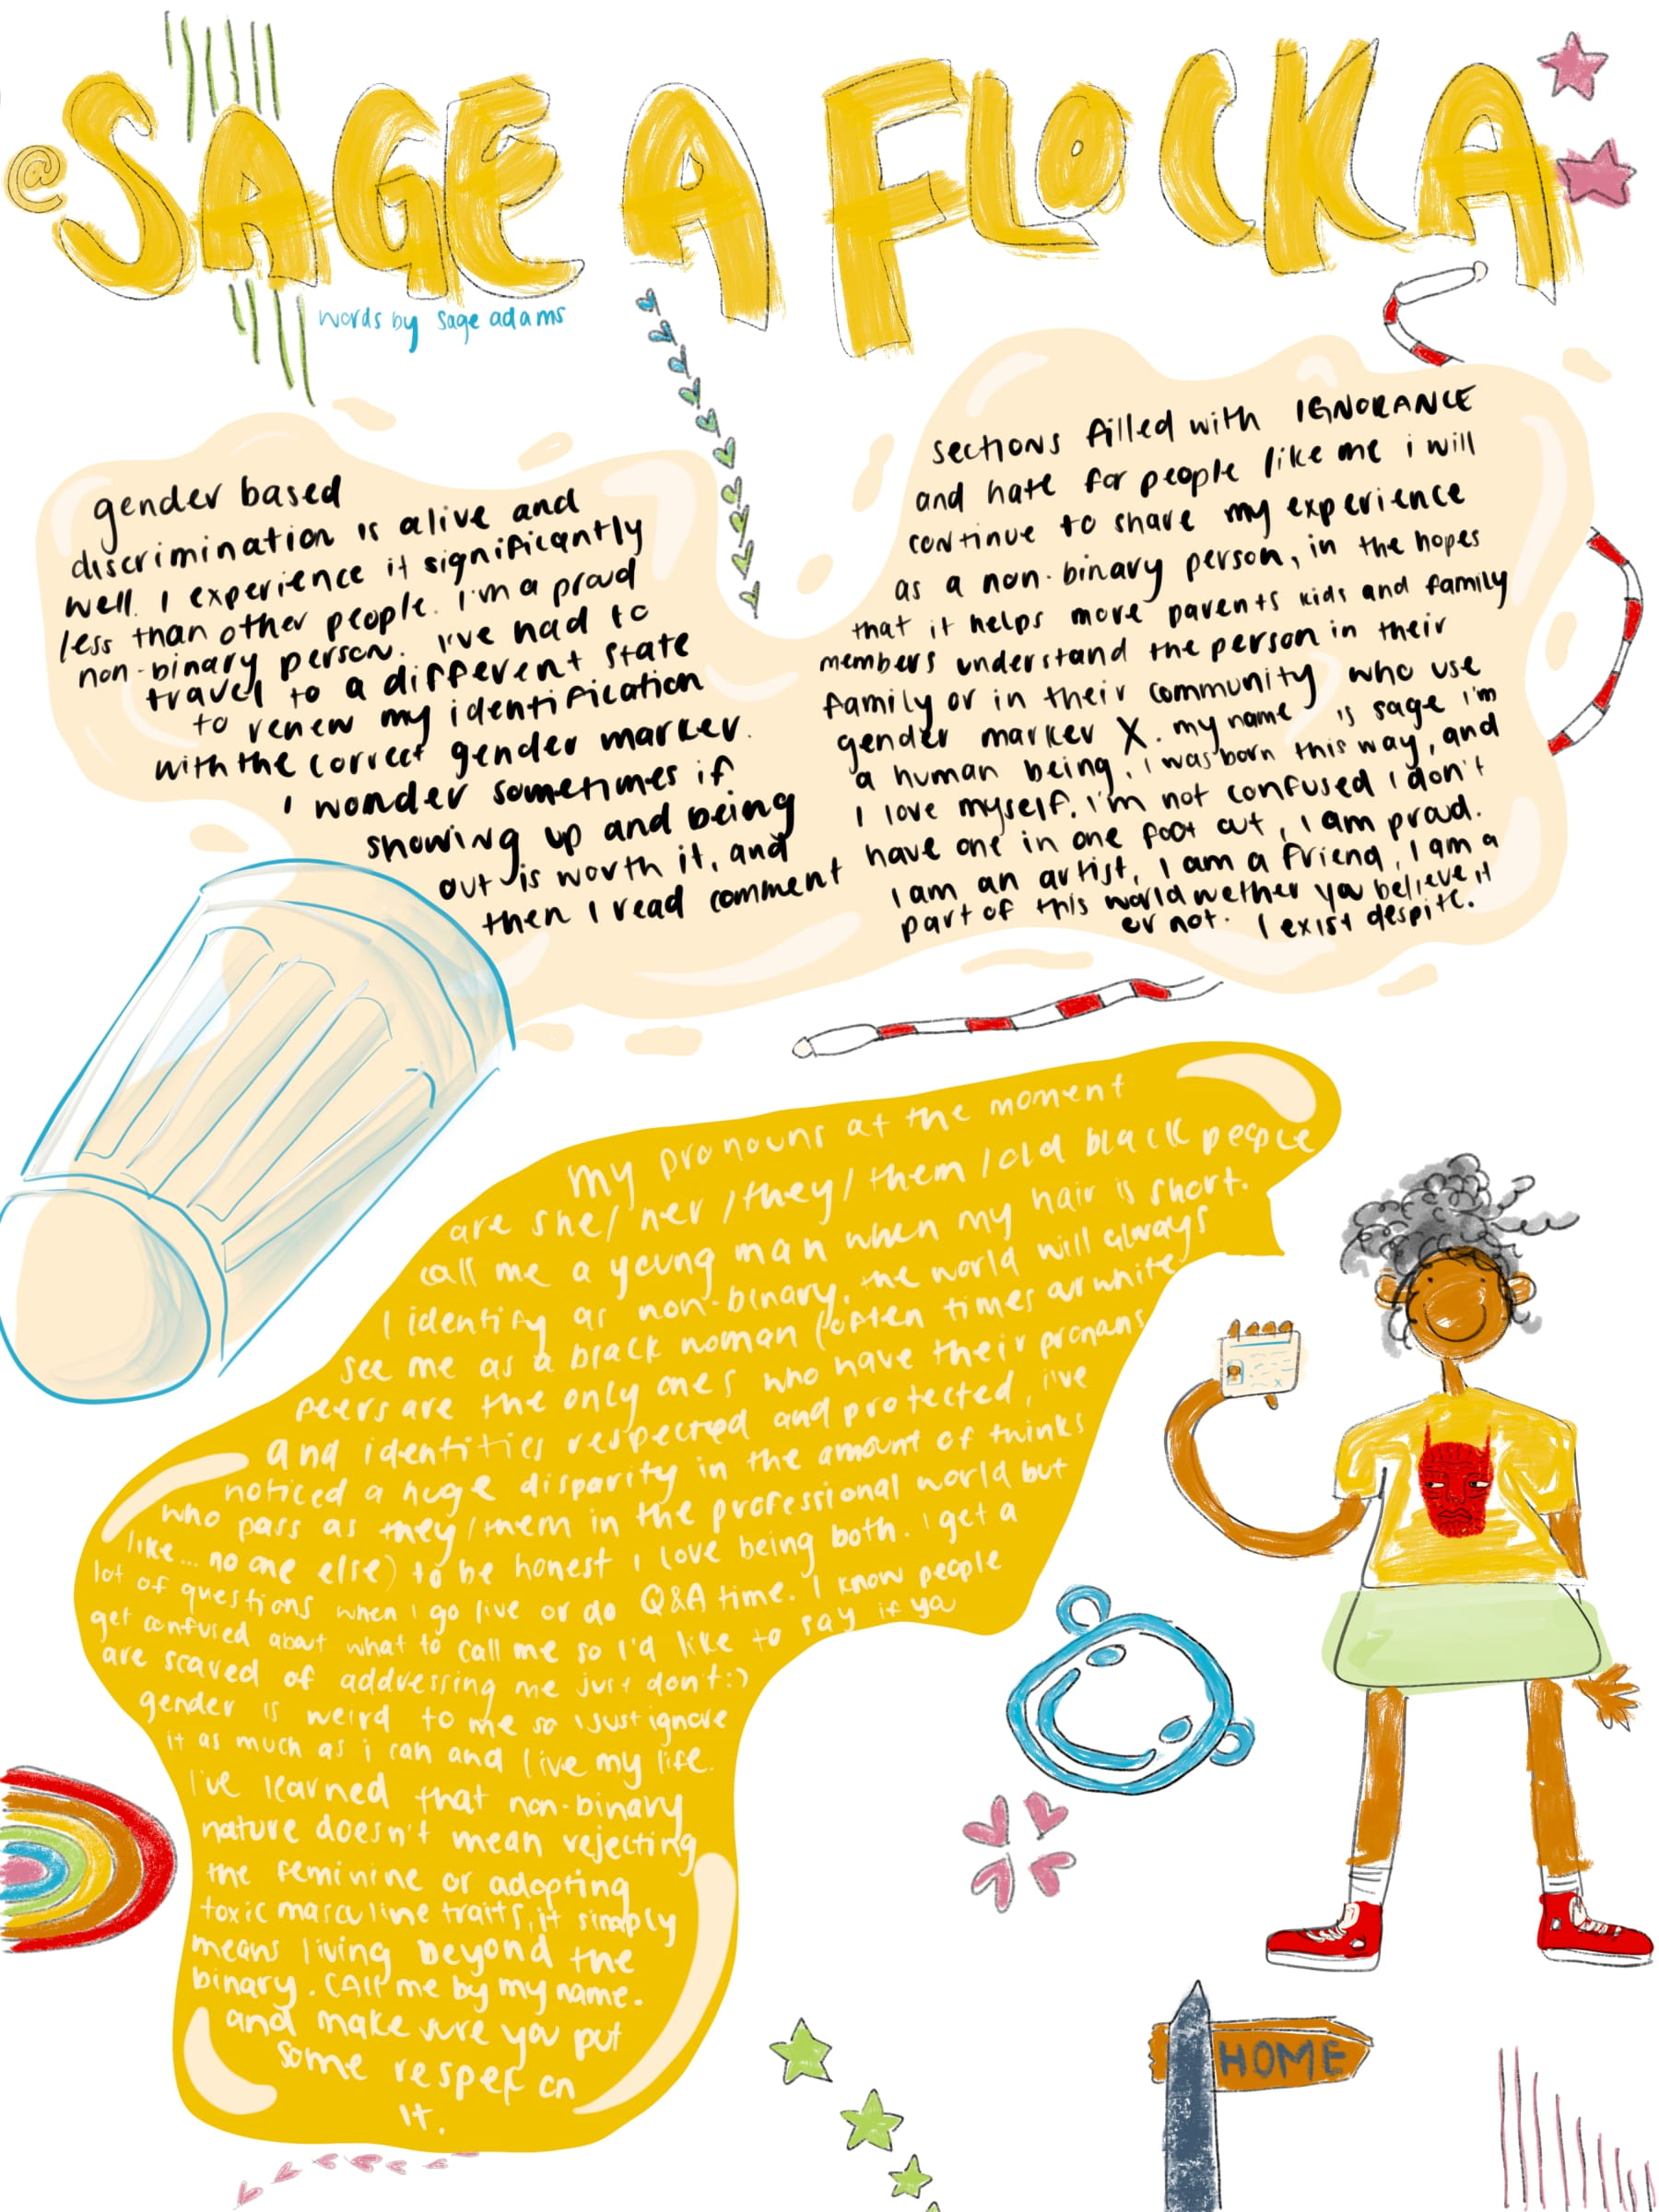 @SAGE A FLOCKA
words by sage adams
gender based
discrimination is alive and
well. I experience it significantly
less than other people. I'm a proud
non-binary person. I've had to
travel to a different state
to renew my identification
with the correct gender marker.
I wonder sometimes if
showing up and being
out is worth it, and
then I read comment
sections filled with IGNORANCE
and hate for people like me i will
continue to share my experience
as a non-binary person, in the hopes
that it helps more parents kids and family
members understand the person in their
family or in their community who use
gender marker X. my name is sage I'm
a human being, I was born this way, and
I love myself. I'm not confused I don't
have one in one foot out, I am proud.
I am an artist, I am a friend, I am a
part of this world wether you believe it
or not. I exist despite.
My pronouns at the moment
are she/her/they/them/old black people
call me a young man when my hair is short.
I identify as non-binary, the world will always
see me as a black woman (often times our white
peers are the only ones who have their pronouns
and identities respected and protected, i've
noticed a huge disparity in the amount of thinks
who pass as they/them in the professional world but
like... no one else) to be honest I love being both. I get a
lot of questions when I go live or do Q&A time. I know people
get confused about what to call me so I'd like to say if ya
are scared of addressing me just don't :)
gender is weird to me so I just ignore
it as much as i can and live my life.
I've learned that non-binary
nature doesn't mean rejecting
the feminine or adopting
toxic masculine traits, it simply
means living beyond the
binary. CAll me by my name.
and make sure you put
some respef on
it.
HOME